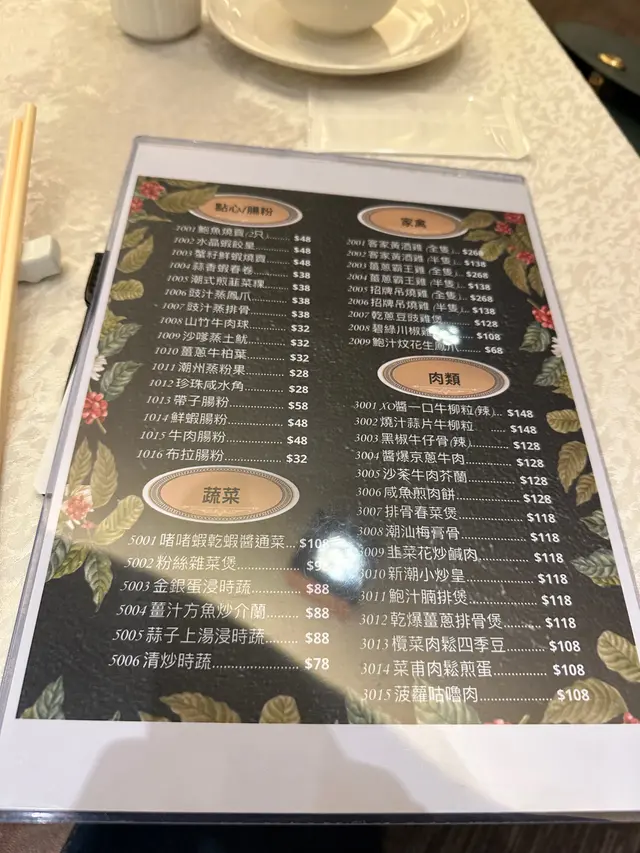 點心/腸粉
1001 鮑魚燒賣(2只)........ $48
1002 水晶蝦餃皇........ $48
1003 蟹籽鮮蝦燒賣........ $48
1004 蒜香蝦春卷........ $38
1005 潮式煎韮菜粿........ $38
1006 豉汁蒸鳳爪........ $38
1007 豉汁蒸排骨........ $38
1008 山竹牛肉球........ $32
1009 沙嗲蒸土魷........ $32
1010 薑蔥牛柏葉........ $32
1011 潮州蒸粉果........ $28
1012 珍珠咸水角........ $28
1013 帶子腸粉........ $58
1014 鮮蝦腸粉........ $48
1015 牛肉腸粉........ $48
1016 布拉腸粉........ $32
蔬菜
5001 啫啫蝦乾蝦醬通菜... $108
5002 粉絲雜菜煲........
5003 金銀蛋浸時蔬........ $88
5004 薑汁方魚炒介蘭........ $88
5005 蒜子上湯浸時蔬........ $88
5006 清炒時蔬........ $78
家禽
2001 客家黃酒雞(全隻)... $268
2002 客家黃酒雞(半隻)... $138
2003 薑蔥霸王雞(全隻)... $268
2004 薑蔥霸王雞(半隻)... $138
2005 招牌吊燒雞(全隻)... $268
2006 招牌吊燒雞(半隻)... $138
2007 乾蔥豆豉雞煲........ $128
2008 碧綠川椒雞 $108
2009 鮑汁炆花生鳳爪... $68
肉類
3001 XO醬一口牛柳粒(辣)... $148
3002 燒汁蒜片牛柳粒 ..... $148
3003 黑椒牛仔骨(辣)........ $128
3004 醬爆京蔥牛肉........ $128
3005 沙茶牛肉芥蘭........ $128
3006 咸魚煎肉餅........ $128
3007 排骨春菜煲........ $118
3008 潮汕梅膏骨........ $118
3009 韭菜花炒鹹肉........ $118
3010 新潮小炒皇........ $118
3011 鮑汁腩排煲........ $118
3012 乾爆薑蔥排骨煲........ $118
3013 欖菜肉鬆四季豆........ $108
3014 菜甫肉鬆煎蛋........ $108
3015 菠蘿咕嚕肉........ $108